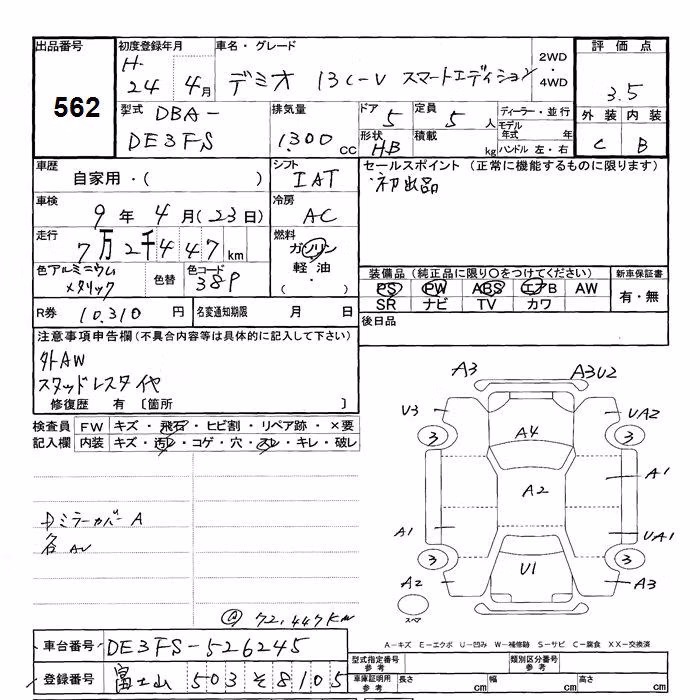 出品番号 初度登録年月 車名・グレード 2WD・4WD 評価点
562 H- 24 4月 デミオ 13C-V スマートエディション 3.5
型式 DBA-DE3FS 排気量 1300cc ドア 5 定員 5人 ディーラー・並行 外装 内装
形状 HB 積載 kg モデル年式 年 ハンドル 左・右 C B
車歴 自家用・( ) シフト IAT セールスポイント (正常に機能するものに限ります)
初出品
車検 9年4月(23日) 冷房 AC
走行 7万2千447km 燃料 ガソリン 軽油 (・)
色 アルミニウムメタリック 色替 色コード 38P 装備品 (純正品に限り○をつけてください) 新車保証書
PS PW ABS エアB AW 有・無
SR ナビ TV カワ
R券 10,310円 名変通知期限 月 日 後日品
注意事項申告欄(不具合内容等は具体的に記入して下さい)
外AW
スタッドレスタイヤ
修復歴 有〔箇所 〕
検査員記入欄 FW キズ・飛石・ヒビ割・リペア跡・×要
内装 キズ・汚レ・コゲ・穴・スレ・キレ・破レ
A3 A3U2
U3 UA2
3 A4 3
A2 A1
A1 UA1
3 3
A2 U1 A3
スペア
Dミラーカバー A
各AU
@ 72,447KM
A-キズ E-エクボ U-凹み W-補修跡 S-サビ C-腐食 XX-交換済
車台番号 DE3FS-526245 型式指定番号 参考 類別区分番号 参考
登録番号 富士山 503 そ 8105 車庫証明用 参考 長さ cm 幅 cm 高さ cm